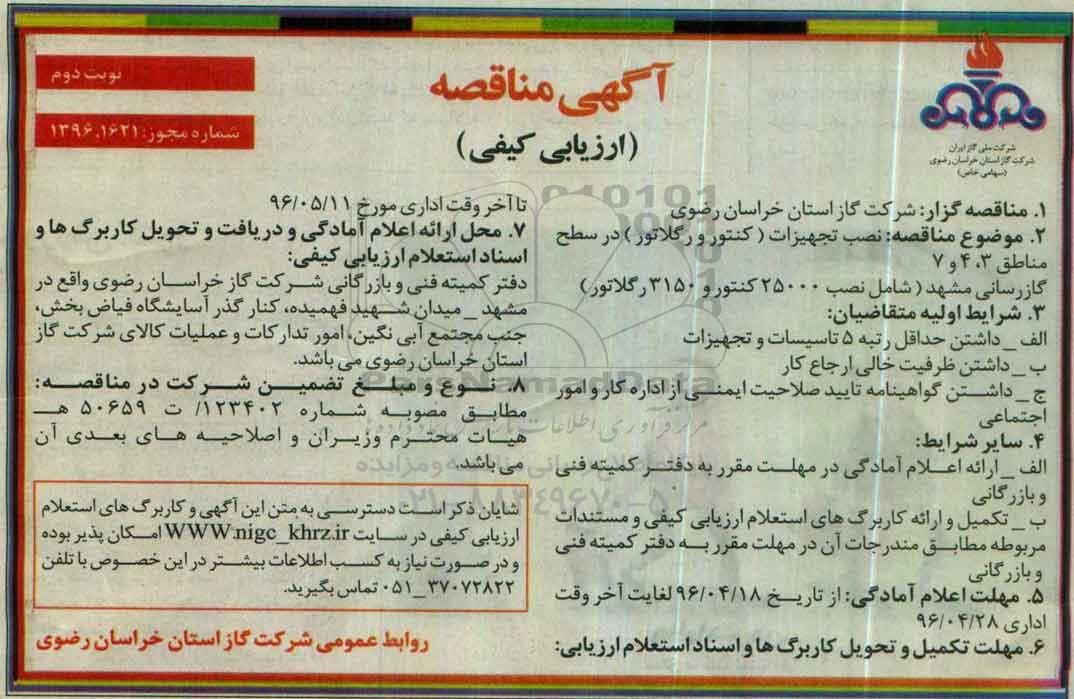 شرکت ملی گاز ایران
شرکت گاز استان خراسان رضوی
(سهامی خاص)
آگهی مناقصه
(ارزیابی کیفی)
نوبت دوم
شماره مجوز: ۱۳۹۶.۱۶۲۱
۱. مناقصه گزار: شرکت گاز استان خراسان رضوی
۲. موضوع مناقصه: نصب تجهیزات ( کنتور و رگلاتور ) در سطح
مناطق ۳، ۴ و ۷
گازرسانی مشهد ( شامل نصب ۲۵۰۰۰ کنتور و ۳۱۵۰ رگلاتور )
۳. شرایط اولیه متقاضیان:
الف _ داشتن حداقل رتبه ۵ تاسیسات و تجهیزات
ب _ داشتن ظرفیت خالی ارجاع کار
ج _ داشتن گواهینامه تایید صلاحیت ایمنی از اداره کار و امور
اجتماعی
۴. سایر شرایط:
الف _ ارائه اعلام آمادگی در مهلت مقرر به دفتر کمیته فنی
و بازرگانی
ب _ تکمیل و ارائه کاربرگ های استعلام ارزیابی کیفی و مستندات
مربوطه مطابق مندرجات آن در مهلت مقرر به دفتر کمیته فنی
و بازرگانی
۵. مهلت اعلام آمادگی: از تاریخ ۹۶/۰۴/۱۸ لغایت آخر وقت
اداری ۹۶/۰۴/۲۸
۶. مهلت تکمیل و تحویل کاربرگ ها و اسناد استعلام ارزیابی:
تا آخر وقت اداری مورخ ۹۶/۰۵/۱۱
۷. محل ارائه اعلام آمادگی و دریافت و تحویل کاربرگ ها و
اسناد استعلام ارزیابی کیفی:
دفتر کمیته فنی و بازرگانی شرکت گاز خراسان رضوی واقع در
مشهد _ میدان شهید فهمیده، کنار گذر آسایشگاه فیاض بخش،
جنب مجتمع آبی نگین، امور تدارکات و عملیات کالای شرکت گاز
استان خراسان رضوی می باشد.
۸. نوع و مبلغ تضمین شرکت در مناقصه:
مطابق مصوبه شماره ۱۲۳۴۰۲/ ت ۵۰۶۵۹ هـ
هیات محترم وزیران و اصلاحیه های بعدی آن
می باشد.
شایان ذکر است دسترسی به متن این آگهی و کاربرگ های استعلام
ارزیابی کیفی در سایت WWW.nigc_khrz.ir امکان پذیر بوده
و در صورت نیاز به کسب اطلاعات بیشتر در این خصوص با تلفن
۳۷۰۷۲۸۲۲ _ ۰۵۱ تماس بگیرید.
روابط عمومی شرکت گاز استان خراسان رضوی